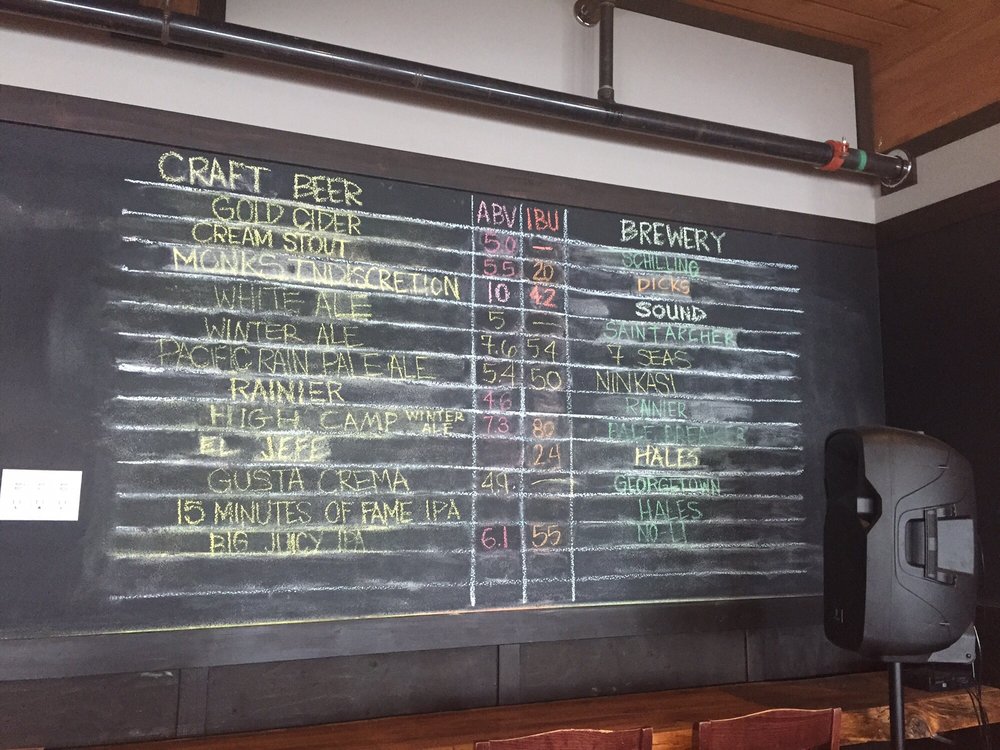 CRAFT BEER ABV IBU BREWERY
GOLD CIDER 5.0 — SCHILLING
CREAM STOUT 5.5 20 DICKS
MONKS INDISCRETION 10 42 SOUND
WHITE ALE 5 — SAINT ARCHER
WINTER ALE 7.6 54 7 SEAS
PACIFIC RAIN PALE ALE 5.4 50 NINKASI
RAINIER 4.6 RAINIER
HIGH CAMP WINTER ALE 7.3 80
EL JEFE 24 HALES
GUSTA CREMA 4.9 — GEORGETOWN
15 MINUTES OF FAME IPA HALES
BIG JUICY IPA 6.1 55 NO-LI